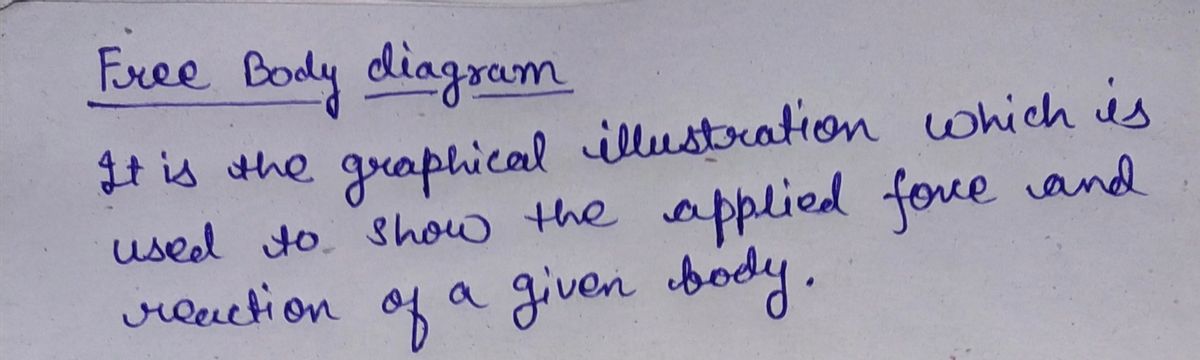 Free Body diagram
It is the graphical illustration which is
used to show the applied force and
reaction of a given body.